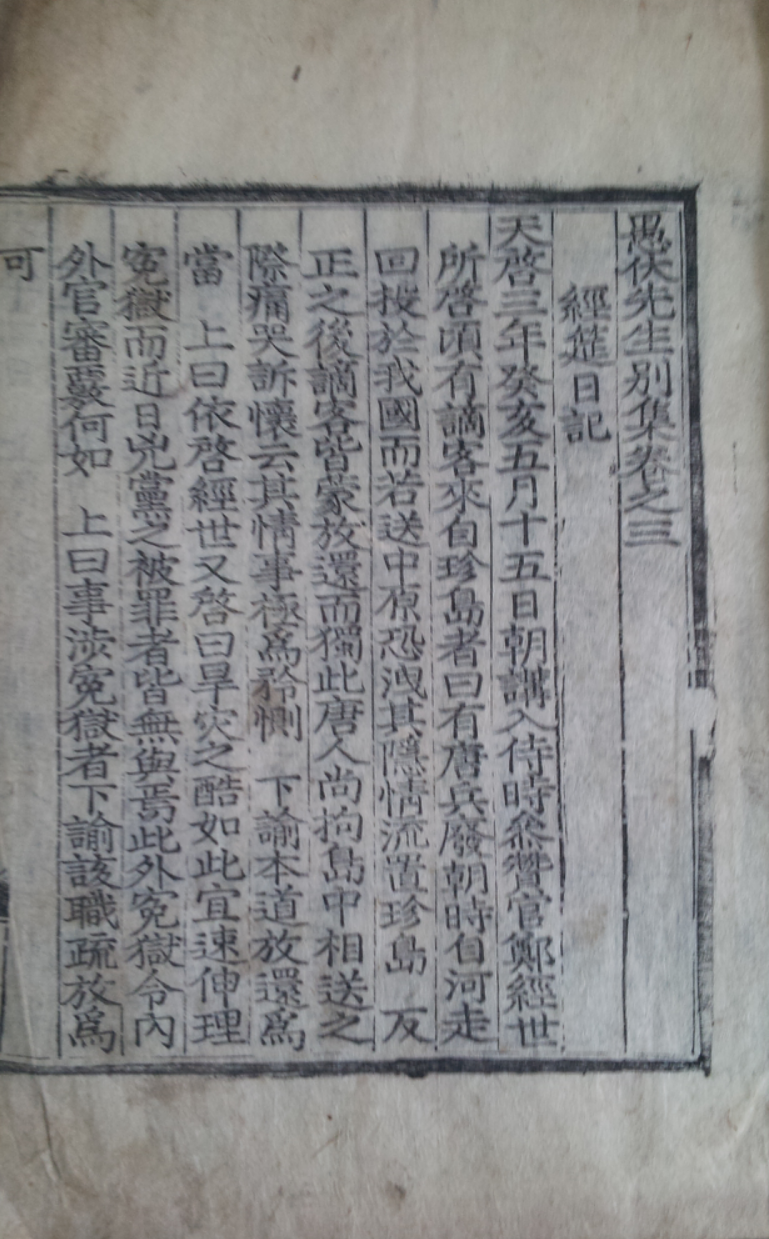 愚伏先生別集卷之三
經筵日記
天啓三年癸亥五月十五日朝講入侍時叅贊官鄭經世
所啓頃有謫客來自珍島者曰有唐兵廢朝時自河走
回投於我國而若送中原恐洩其隱情流置珍島 反
正之後謫客皆蒙放還而獨此唐人尚拘島中相送之
際痛哭訴懷云其情事極爲矜惻 下諭本道放還爲
當 上曰依啓經世又啓曰旱灾之酷如此宜速伸理
寃獄而近日兇黨之被罪者皆無與焉此外寃獄令內
外官審覈何如 上曰事涉寃獄者下諭該職疏放爲
可